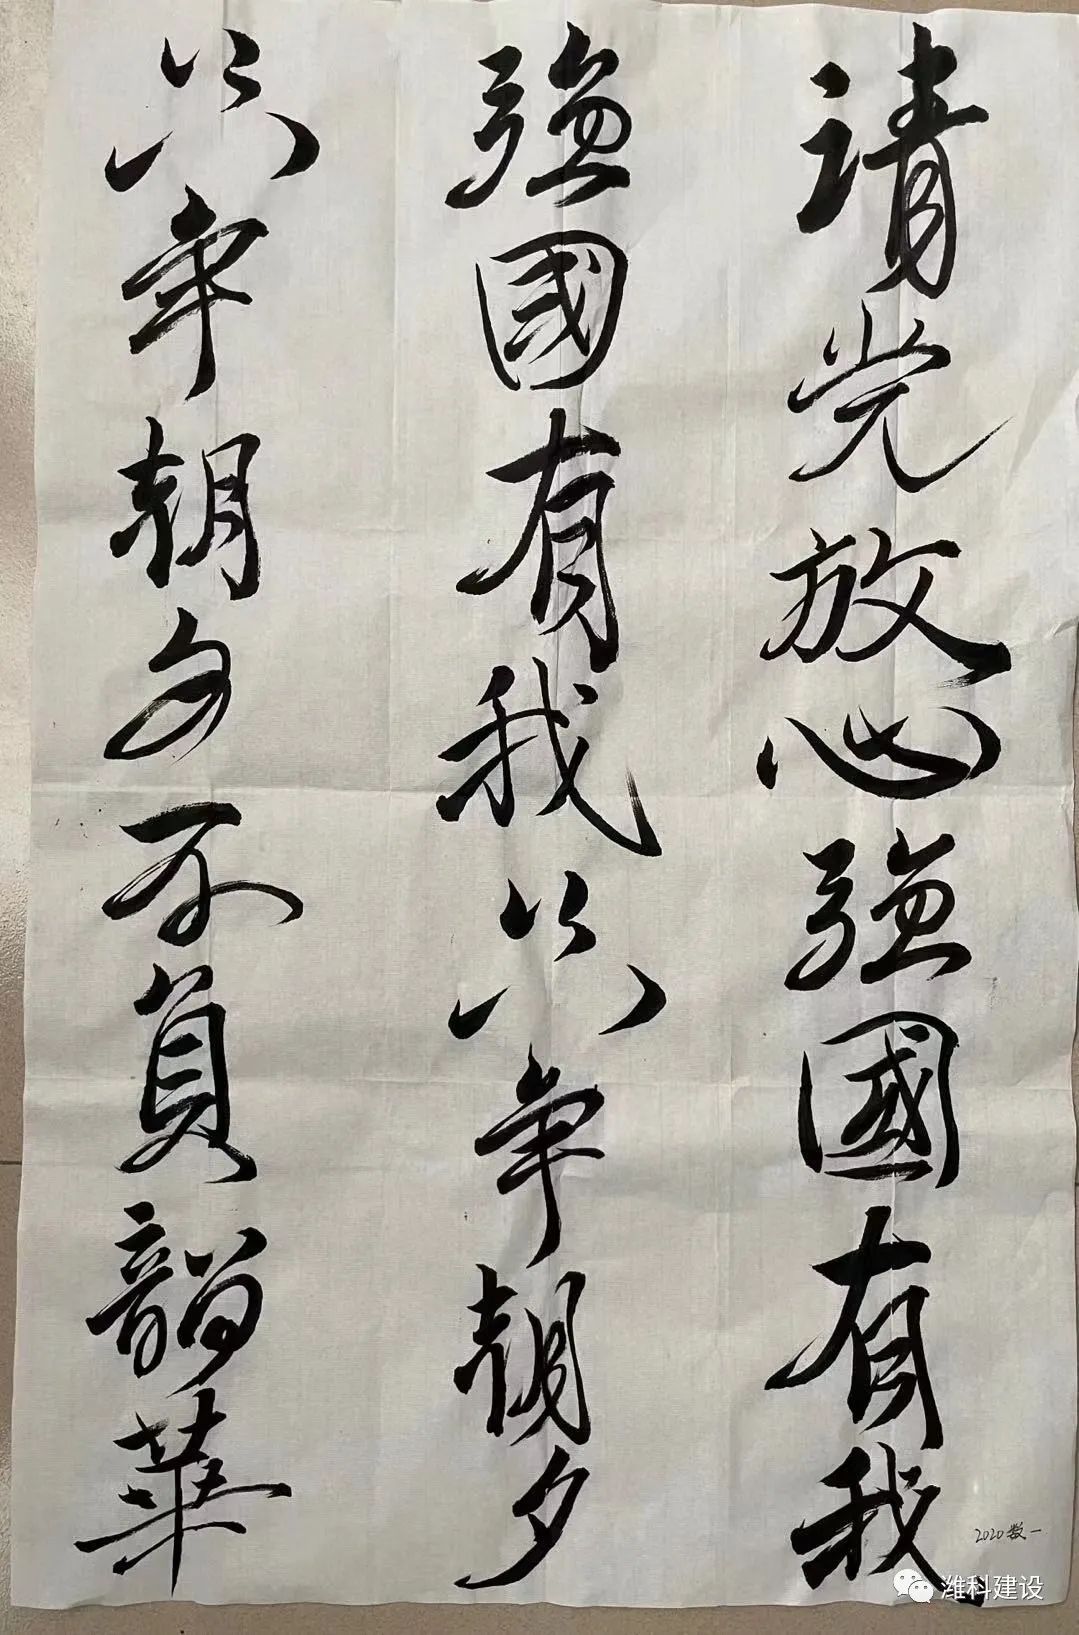 请党放心強國有我
強國有我只争朝夕
只争朝夕不負韶華
2020数一
潍科建设